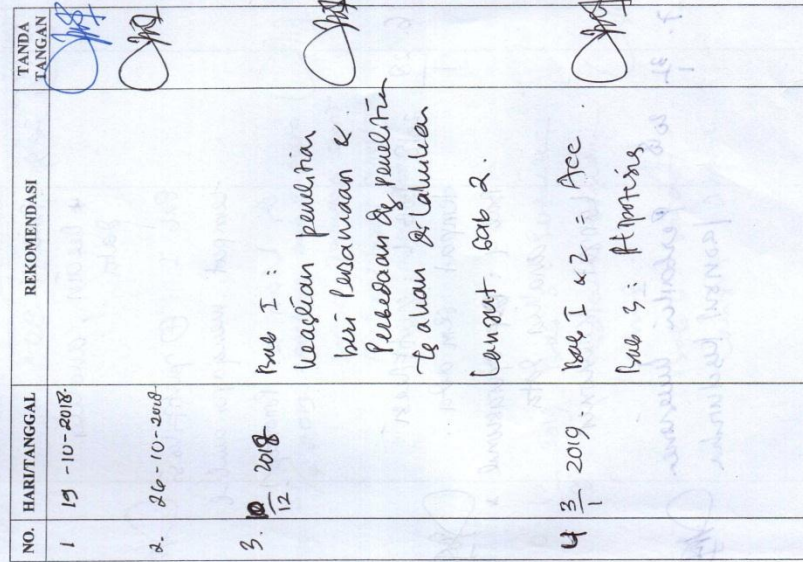 NO. HARI/TANGGAL REKOMENDASI TANDA TANGAN
1 19-10-2018.
2. 26-10-2018
3. 10/12 2018 Bab I :
keaslian penelitian
beri Persamaan &
Perbedaan dg penelitian
yg akan dilakukan
Lanjut Bab 2.
4 3/1 2019. Bab I & 2 = Acc.
Bab 3 : Hipotesis